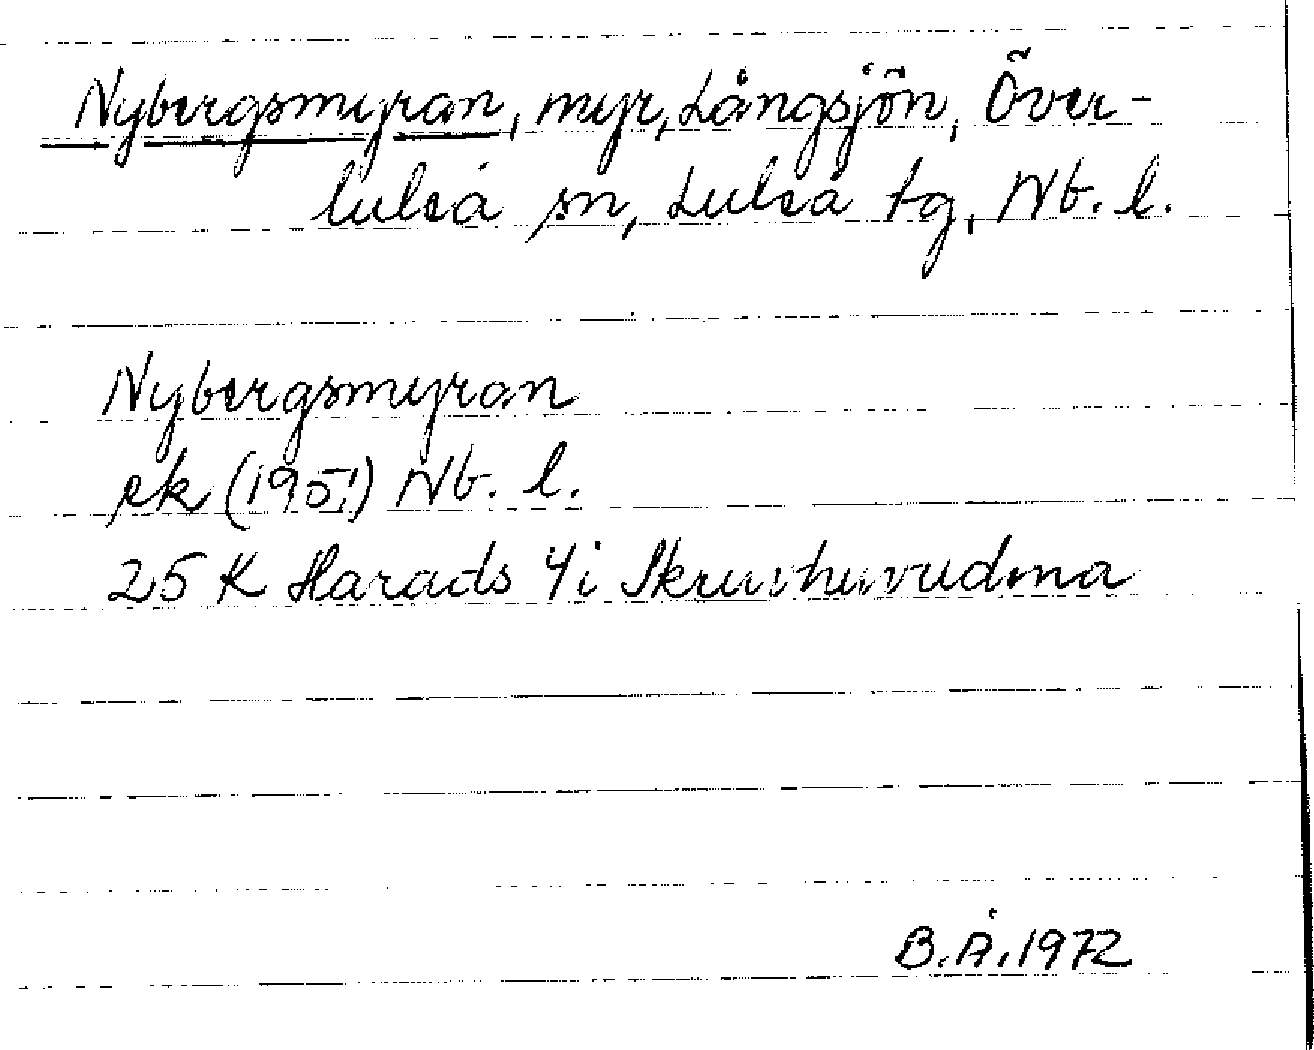 Nybergsmyran, myr, Långsjön, Över-
luleå sn, Luleå tg, Nb. l.
Nybergsmyran
rk (1951) Nb. l.
25 K Harads 4i Skruvhuvudma
B.Å. 1972